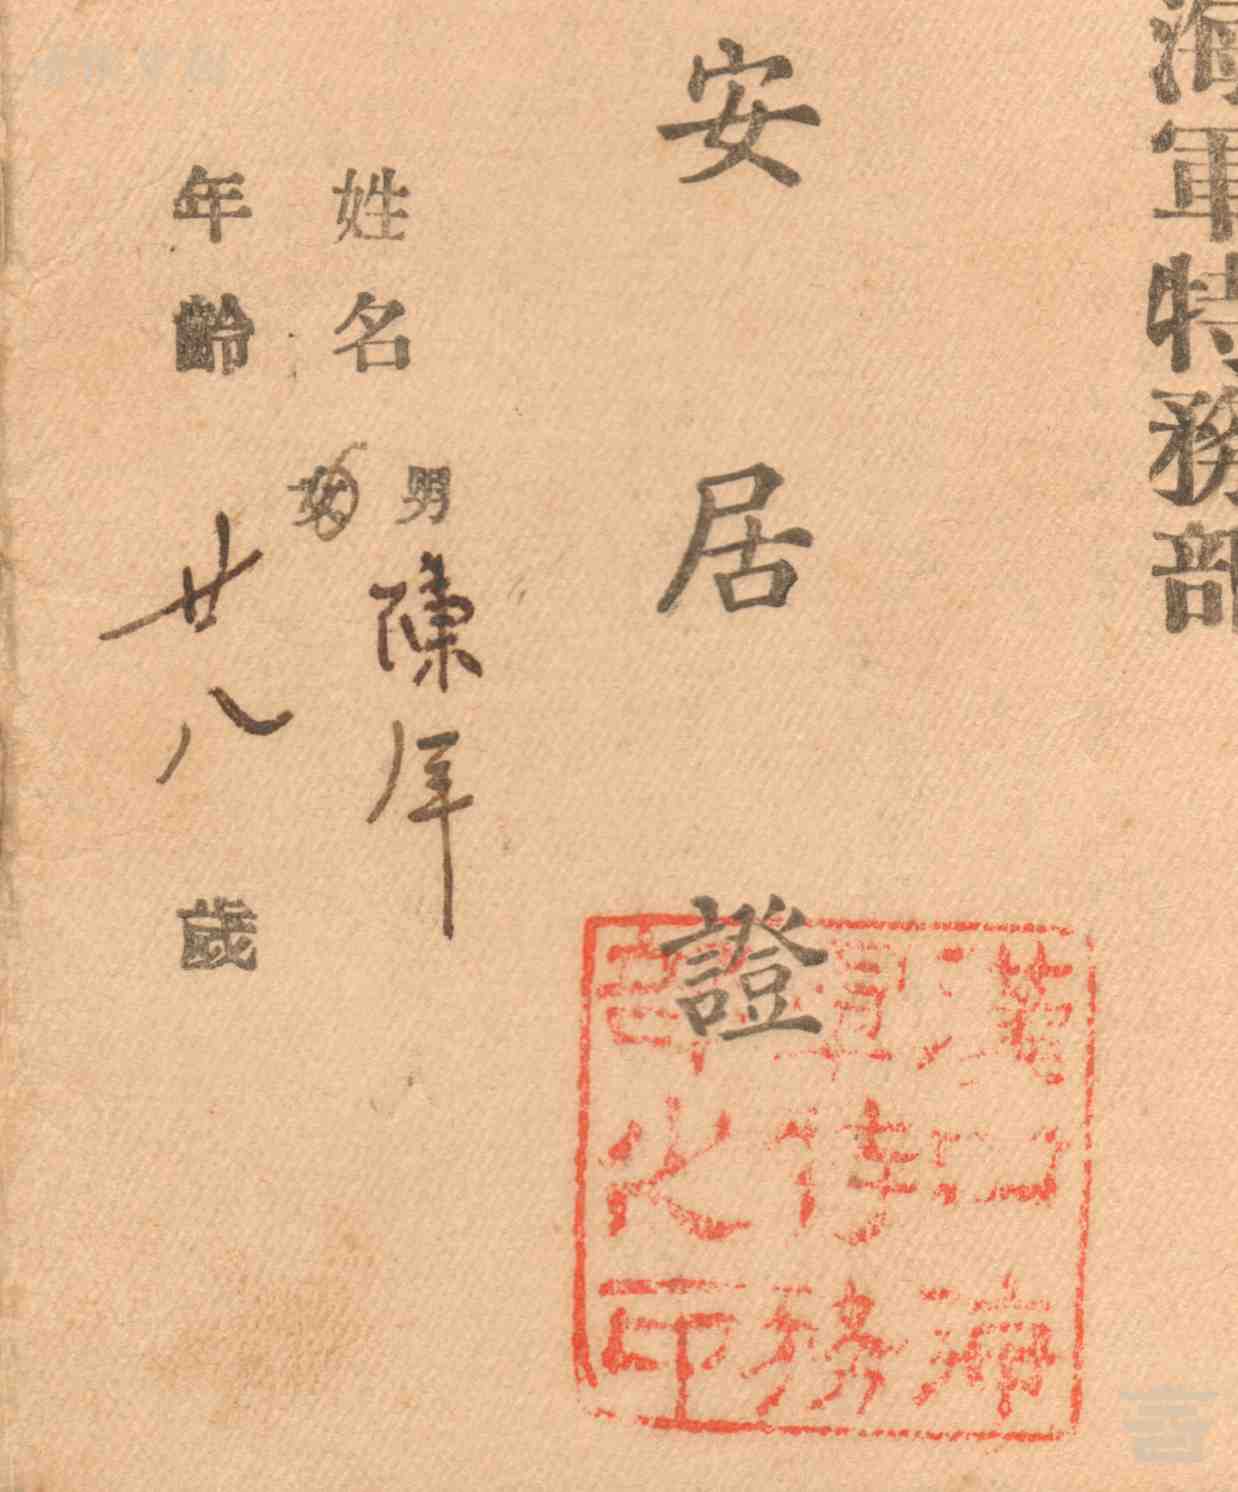 海軍特務部
安居證
漢口海
軍特務
部之印
姓名 男 女 陳
年齡 廿八 歲